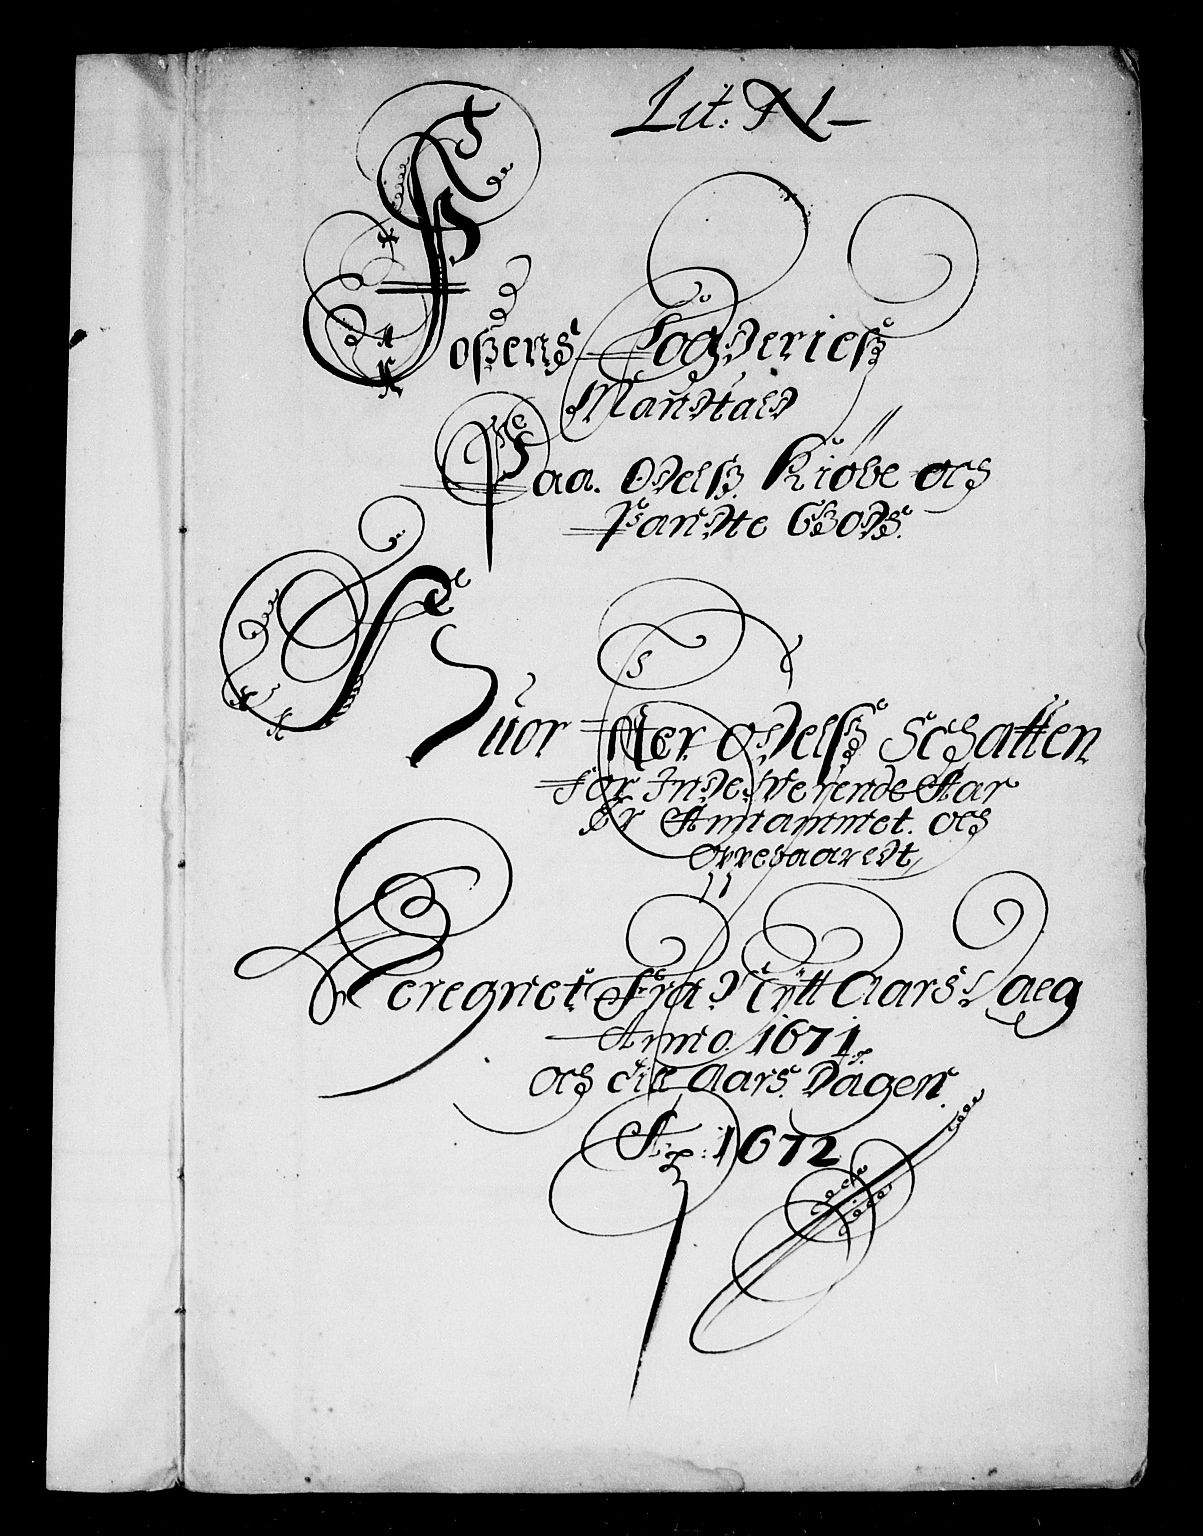 Lit: N
Foßens Fogderieß
Mandtald
Paa Odelß Kiøbe och
Pandte Godß
Huor Aer Odelß Schatten
for Indeverende Aar
Er Annammet och
oppebaaredt
Beregnet Fra Nytt Aars Daeg
Anno 1671
och till Aars Dagen
Ao: 1672